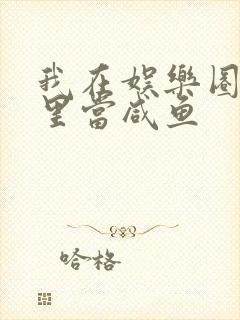 我在娱樂圈
里當咸鱼
哈格